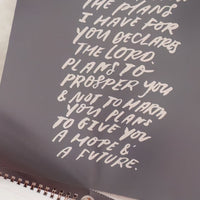 THE PLANS
I HAVE FOR
YOU DECLARES
THE LORD.
PLANS TO
PROSPER YOU
& NOT TO HARM
YOU PLANS
TO GIVE YOU
A HOPE &
A FUTURE.